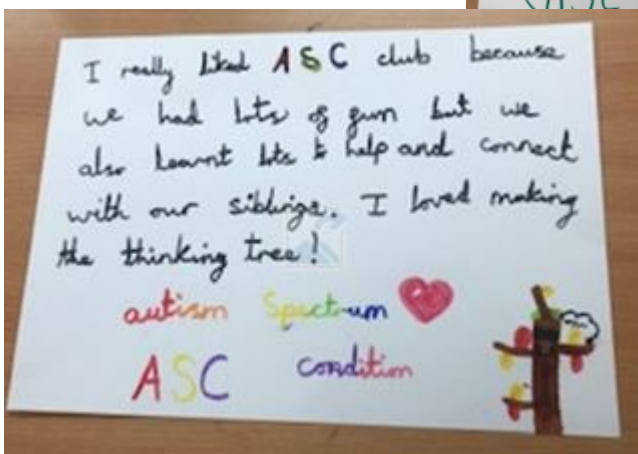 I really liked ASC club because
we had lots of gun but we
also learnt lots to help and connect
with our siblings. I loved making
the thinking tree!
autism Spectrum
ASC condition